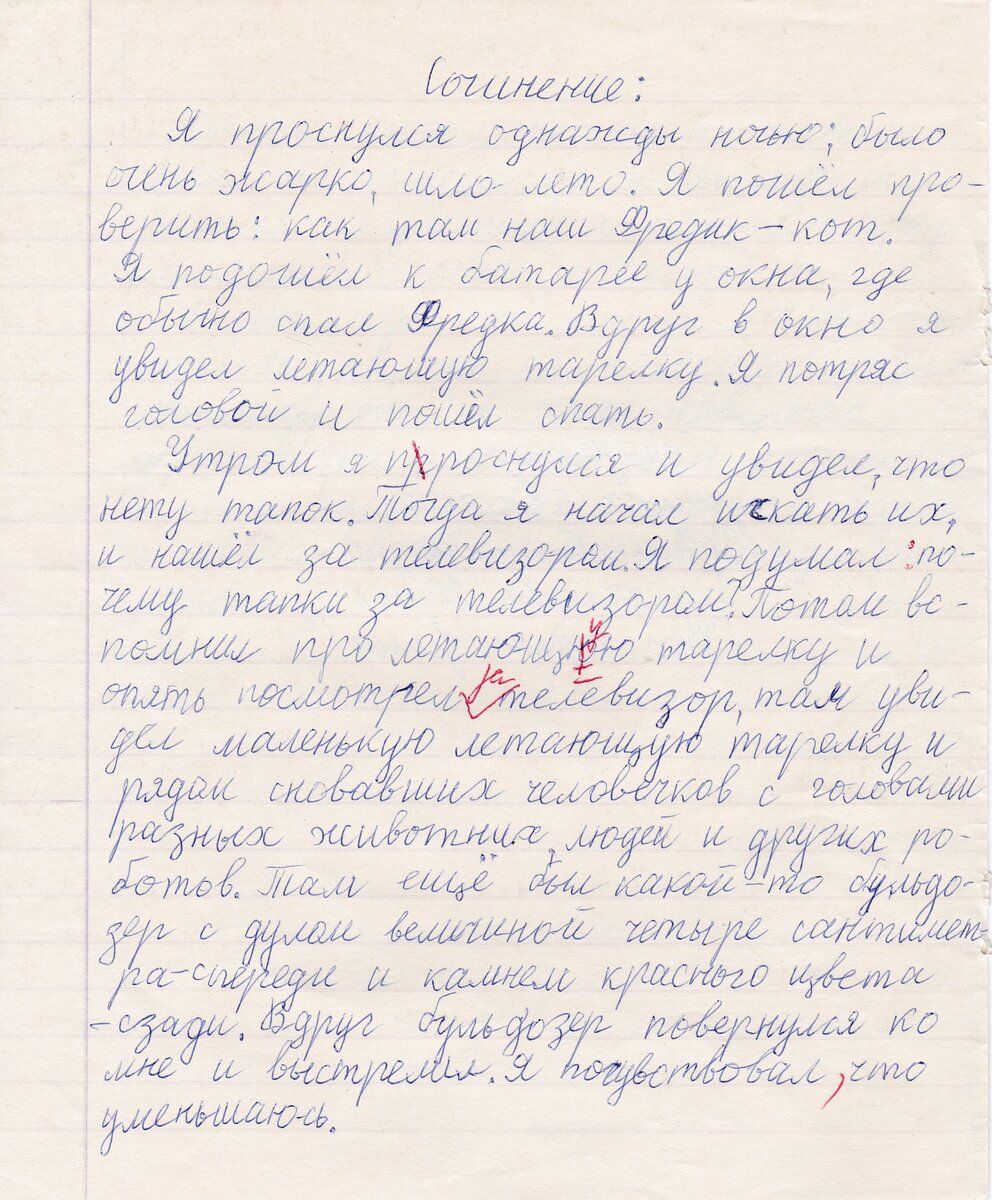 Сочинение:
Я проснулся однажды ночью; было
очень жарко, шло лето. Я пошёл про-
верить: как там наш Фредик – кот.
Я подошёл к батарее у окна, где
обычно спал Фредка. Вдруг в окно я
увидел летающую тарелку. Я потряс
головой и пошёл спать.
Утром я проснулся и увидел, что
нету тапок. Тогда я начал искать их,
и нашёл за телевизором. Я подумал: по-
чему тапки за телевизором? Потом вс-
помнил про летающую тарелку и
опять посмотрел за телевизор, там уви-
дел маленькую летающую тарелку и
рядом сновавших человечков с головами
разных животных, людей и других ро-
ботов. Там ещё был какой-то бульдо-
зер с дулом величиной четыре сантимет-
ра-спереди и камнем красного цвета
-сзади. Вдруг бульдозер повернулся ко
мне и выстрелил. Я почувствовал, что
уменьшаюсь.